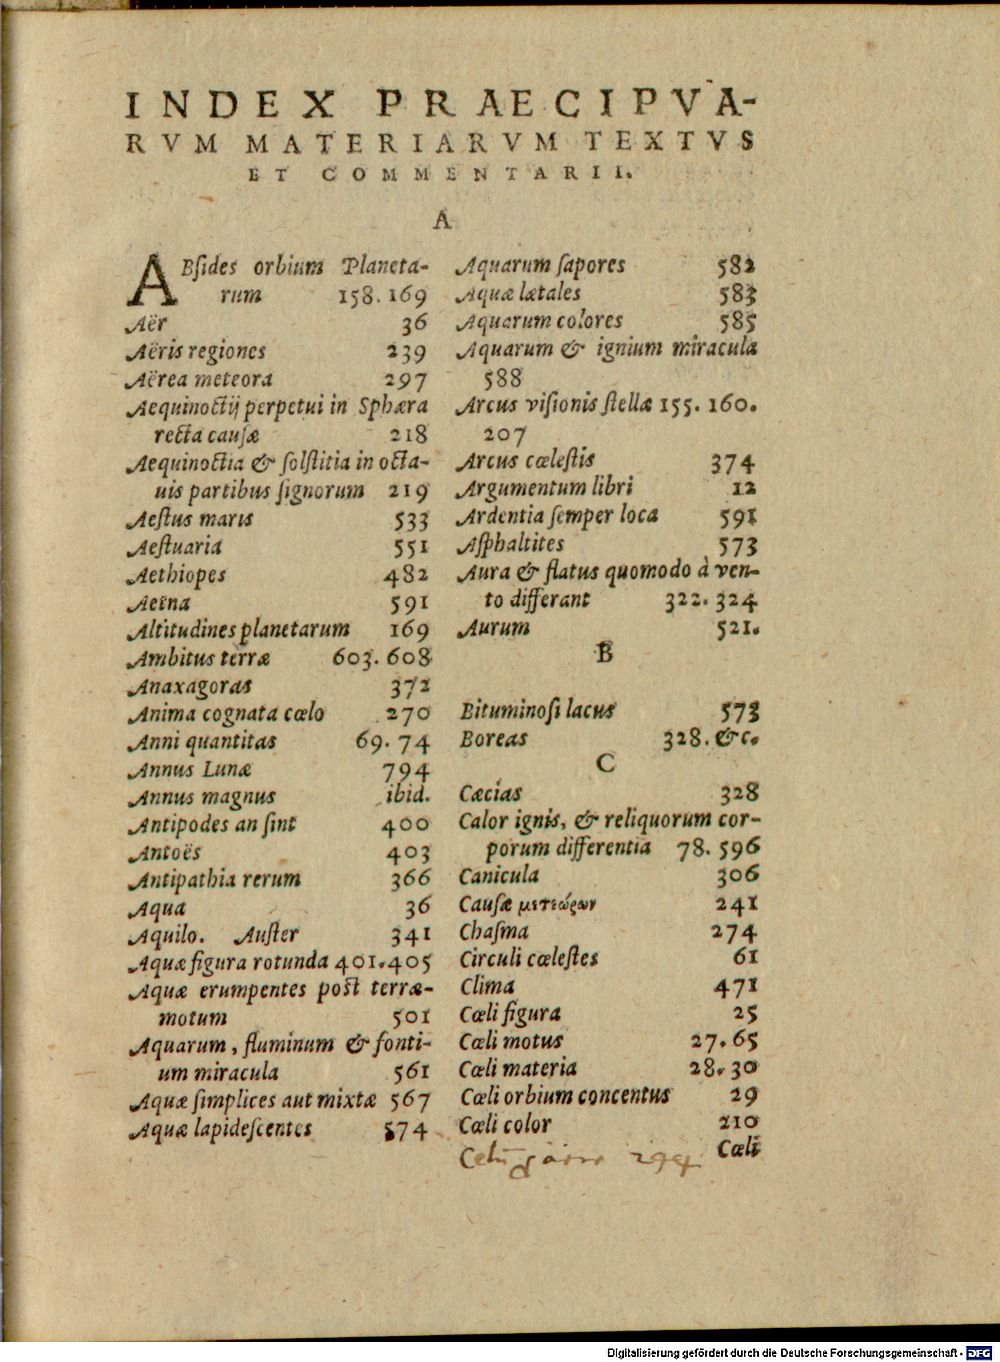 INDEX PRAECIPVA-
RVM MATERIARVM TEXTVS
ET COMMENTARII.
A
ABſides orbium Planeta-
rum 158. 169
Aër 36
Aëris regiones 239
Aërea meteora 297
Aequinoctij perpetui in Sphæra
recta cauſæ 218
Aequinoctia & ſolſtitia in octa-
uis partibus ſignorum 219
Aeſtus maris 533
Aeſtuaria 551
Aethiopes 482
Aetna 591
Altitudines planetarum 169
Ambitus terræ 603. 608
Anaxagoras 372
Anima cognata cœlo 270
Anni quantitas 69. 74
Annus Lunæ 794
Annus magnus ibid.
Antipodes an ſint 400
Antoës 403
Antipathia rerum 366
Aqua 36
Aquilo. Auſter 341
Aquæ figura rotunda 401. 405
Aquæ erumpentes poſt terræ-
motum 501
Aquarum, fluminum & fonti-
um miracula 561
Aquæ ſimplices aut mixtæ 567
Aquæ lapideſcentes 574
Aquarum ſapores 582
Aquæ lætales 583
Aquarum colores 585
Aquarum & ignium miracula
588
Arcus viſionis ſtellæ 155. 160.
207
Arcus cœleſtis 374
Argumentum libri 12
Ardentia ſemper loca 591
Aſphaltites 573
Aura & flatus quomodo à ven-
to differant 322. 324
Aurum 521.
B
Bituminoſi lacus 573
Boreas 328. &c.
C
Cæcias 328
Calor ignis, & reliquorum cor-
porum differentia 78. 596
Canicula 306
Cauſæ μετεώρων 241
Chaſma 274
Circuli cœleſtes 61
Clima 471
Cœli figura 25
Cœli motus 27. 65
Cœli materia 28. 30
Cœli orbium concentus 29
Cœli color 210
Cœli
Digitalisierung gefördert durch die Deutsche Forschungsgemeinschaft - DFG